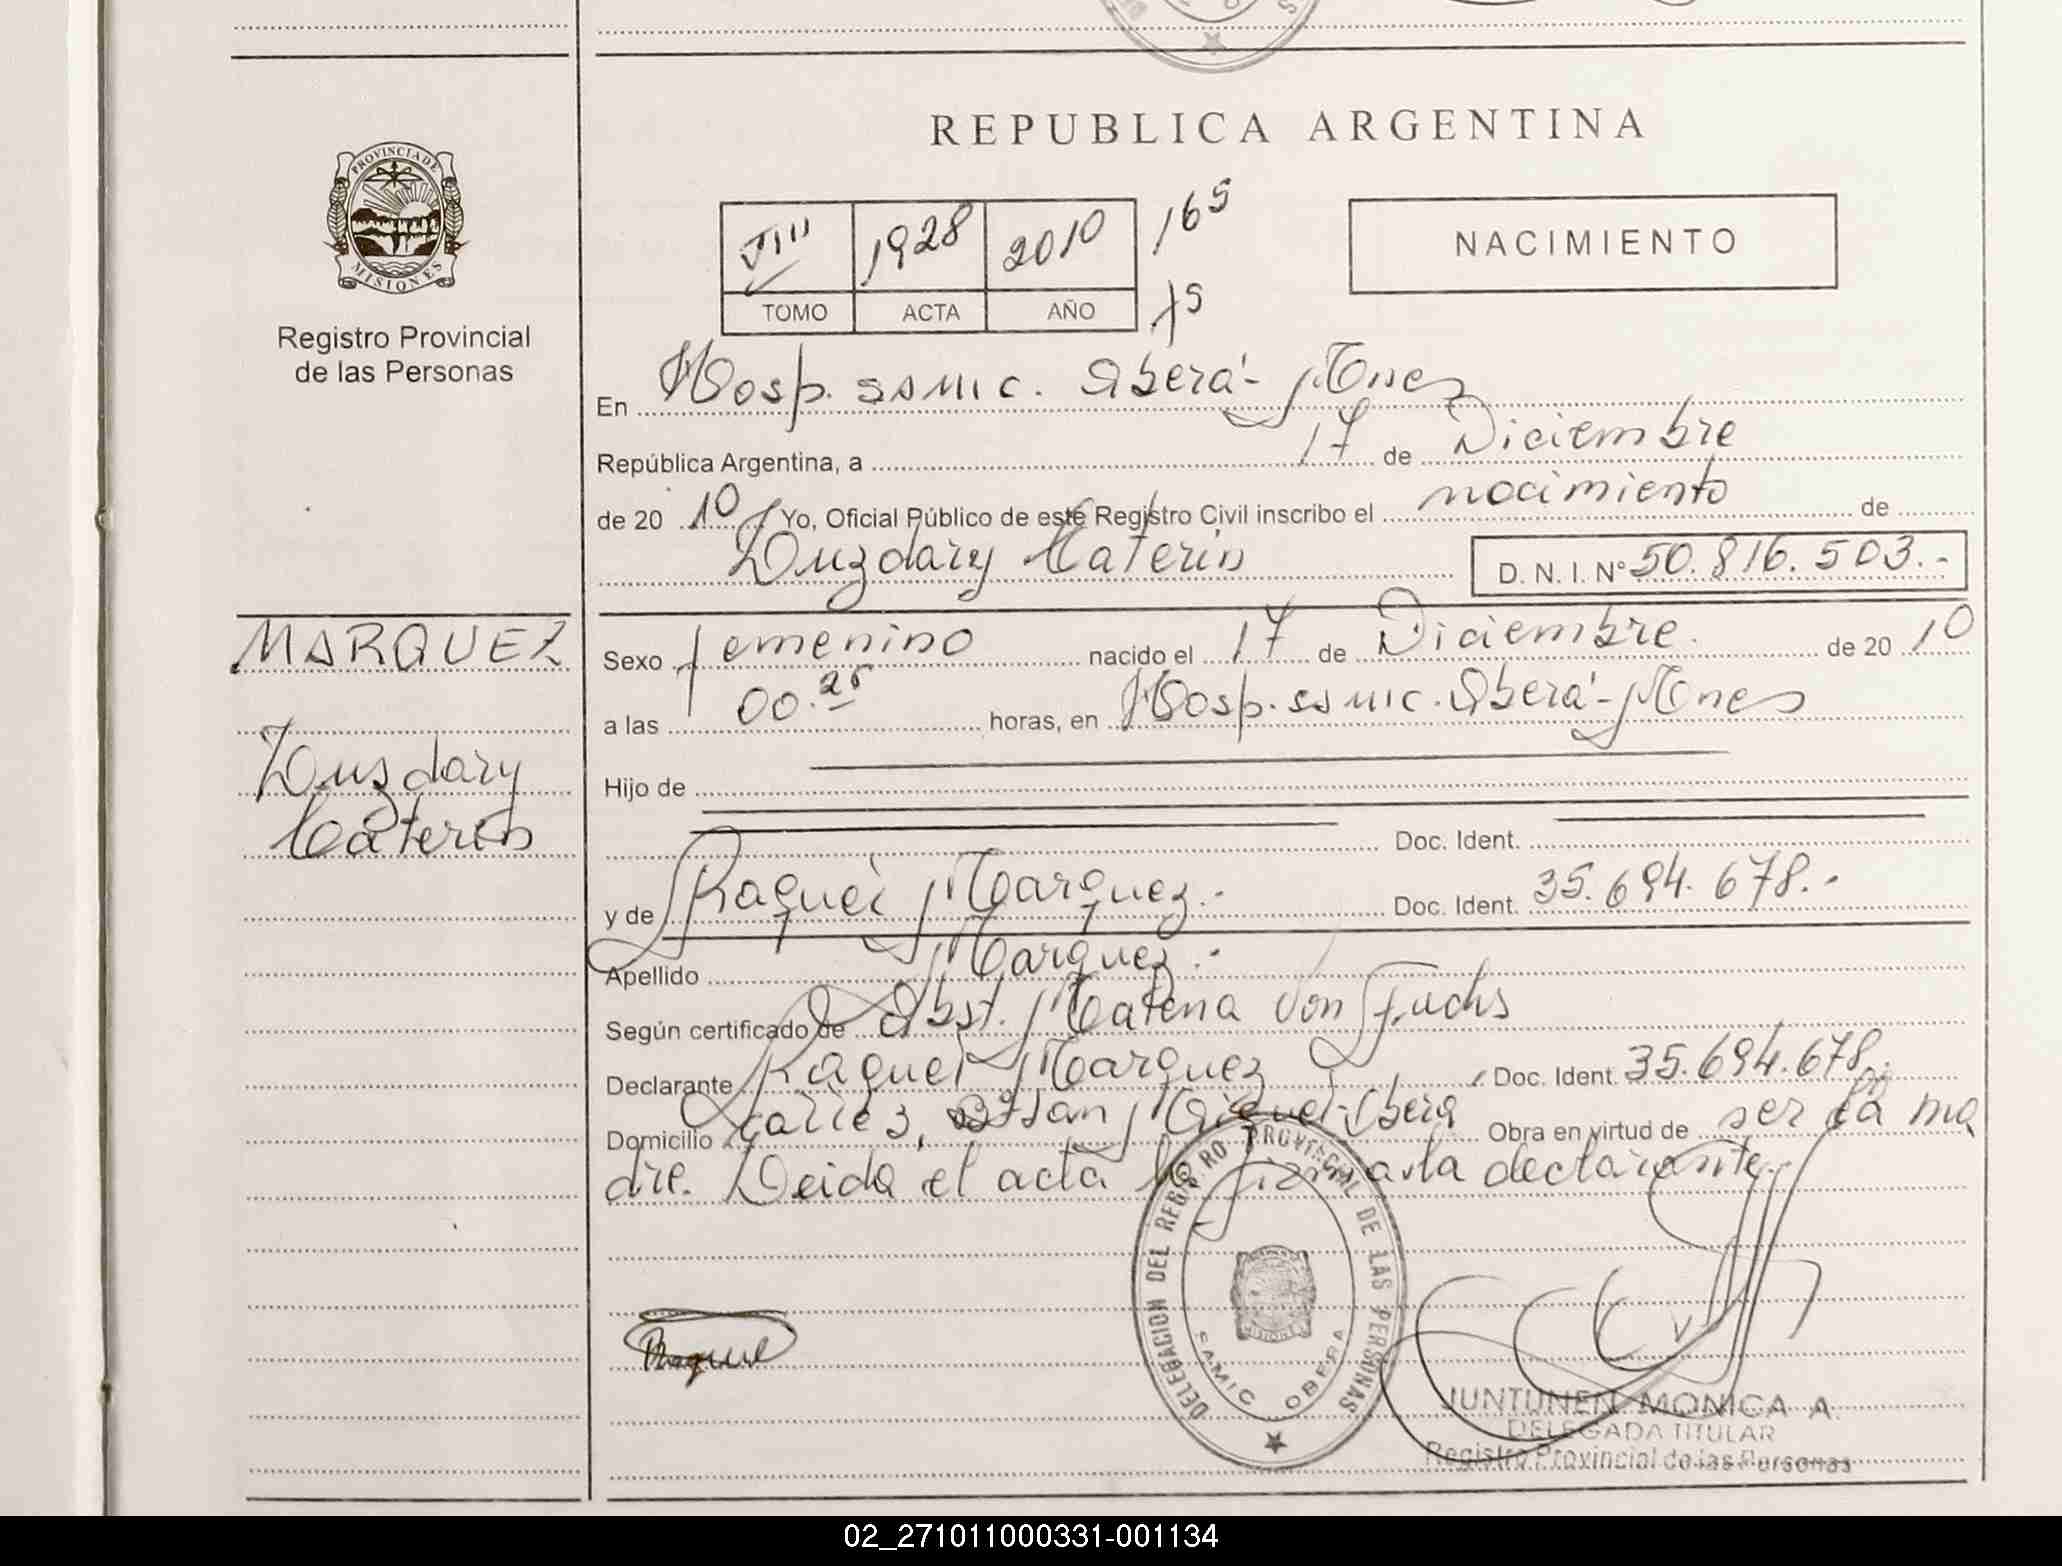 REPUBLICA ARGENTINA
PROVINCIA DE
MISIONES
Registro Provincial
de las Personas
VIII 1928 2010 165
TOMO ACTA AÑO 75
NACIMIENTO
En Hosp. SAMIC. Oberá - Mnes
República Argentina, a 17 de Diciembre
de 2010 Yo, Oficial Público de este Registro Civil inscribo el nacimiento de
Luzdary Caterin D. N. I. Nº 50.816.503.-
MARQUEZ
Luzdary
Caterin
Sexo femenino nacido el 17 de Diciembre. de 2010
a las 00.25 horas, en Hosp. SAMIC. Oberá - Mnes
Hijo de
Doc. Ident.
y de Raquel Marquez.- Doc. Ident. 35.694.678.-
Apellido Marquez.-
Según certificado de Obst. Von Fuchs
Declarante Raquel Marquez Doc. Ident. 35.694.678.-
Domicilio San Miguel - Oberá Obra en virtud de ser la ma
dre. Leida el acta la firma la declarante.
Raquel
DELEGACION DEL REGISTRO PROVINCIAL DE LAS PERSONAS
SAMIC OBERA
MISIONES
JUNTUNEN MONICA A.
DELEGADA TITULAR
Registro Provincial de las Personas
02_271011000331-001134